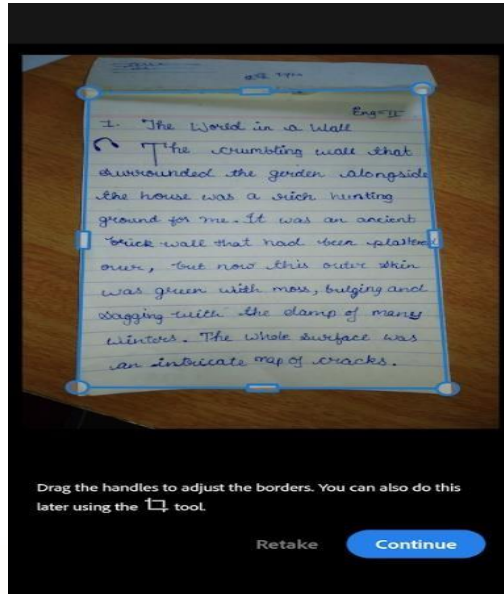 Eng-II
1. The World in a Wall
The crumbling wall that
surrounded the garden alongside
the house was a rich hunting
ground for me. It was an ancient
brick wall that had been plastered
over, but now this outer skin
was green with moss, bulging and
sagging with the damp of many
winters. The whole surface was
an intricate map of cracks.
Drag the handles to adjust the borders. You can also do this
later using the tool.
Retake Continue